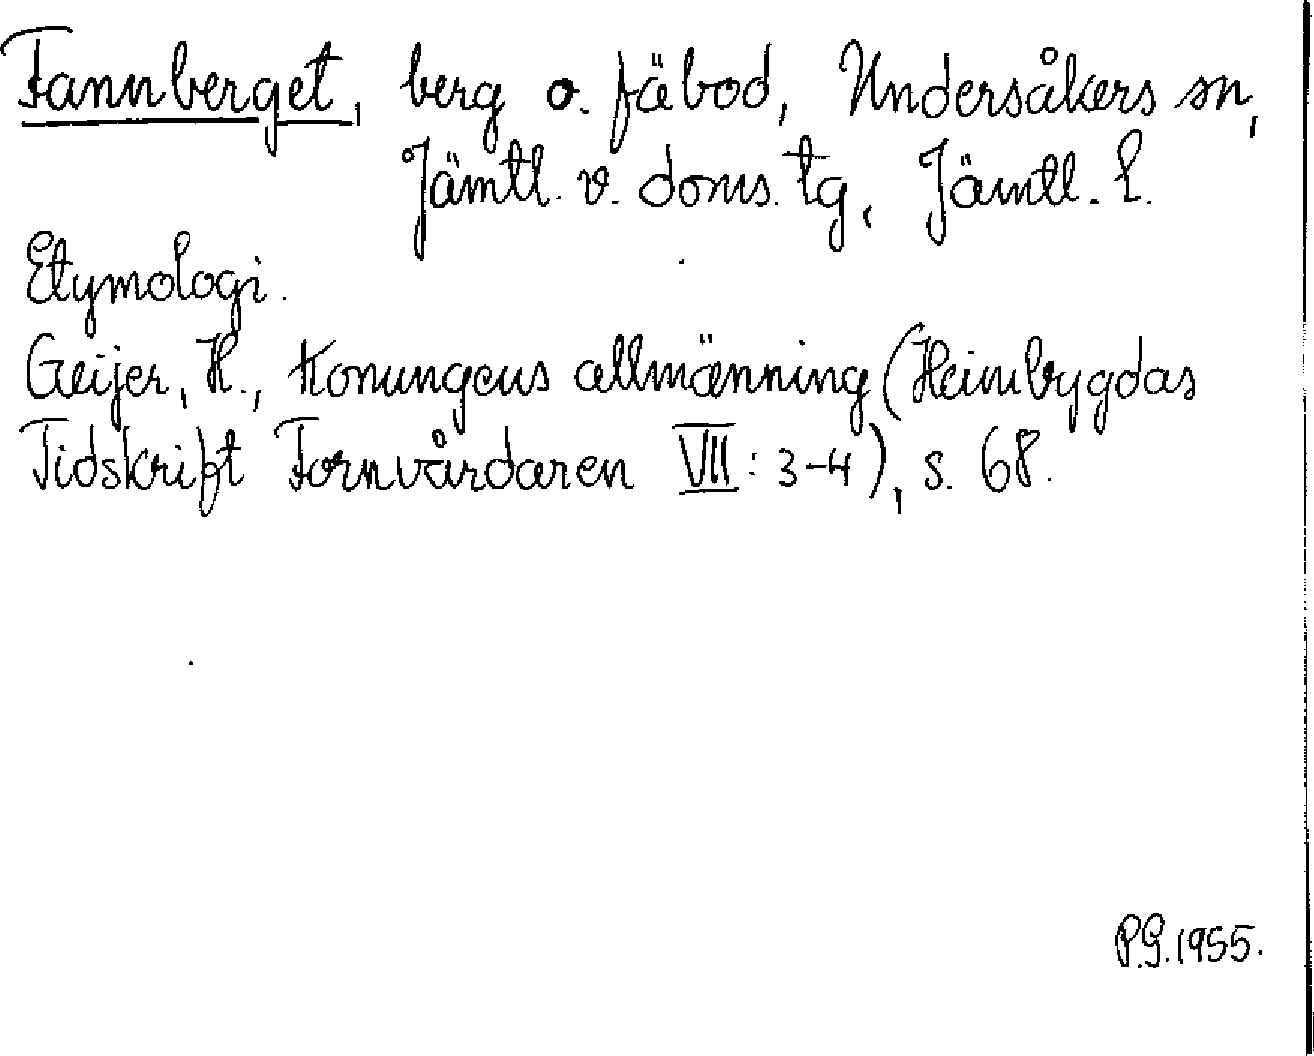 Fannberget, berg o. fäbod, Undersåkers sn,
Jämtl. v. doms. tg, Jämtl. l.
Etymologi.
Geijer, H., Konungens allmänning (Heimbygdas
Tidskrift Fornvårdaren VII: 3-4), s. 68.
P.G. 1955.